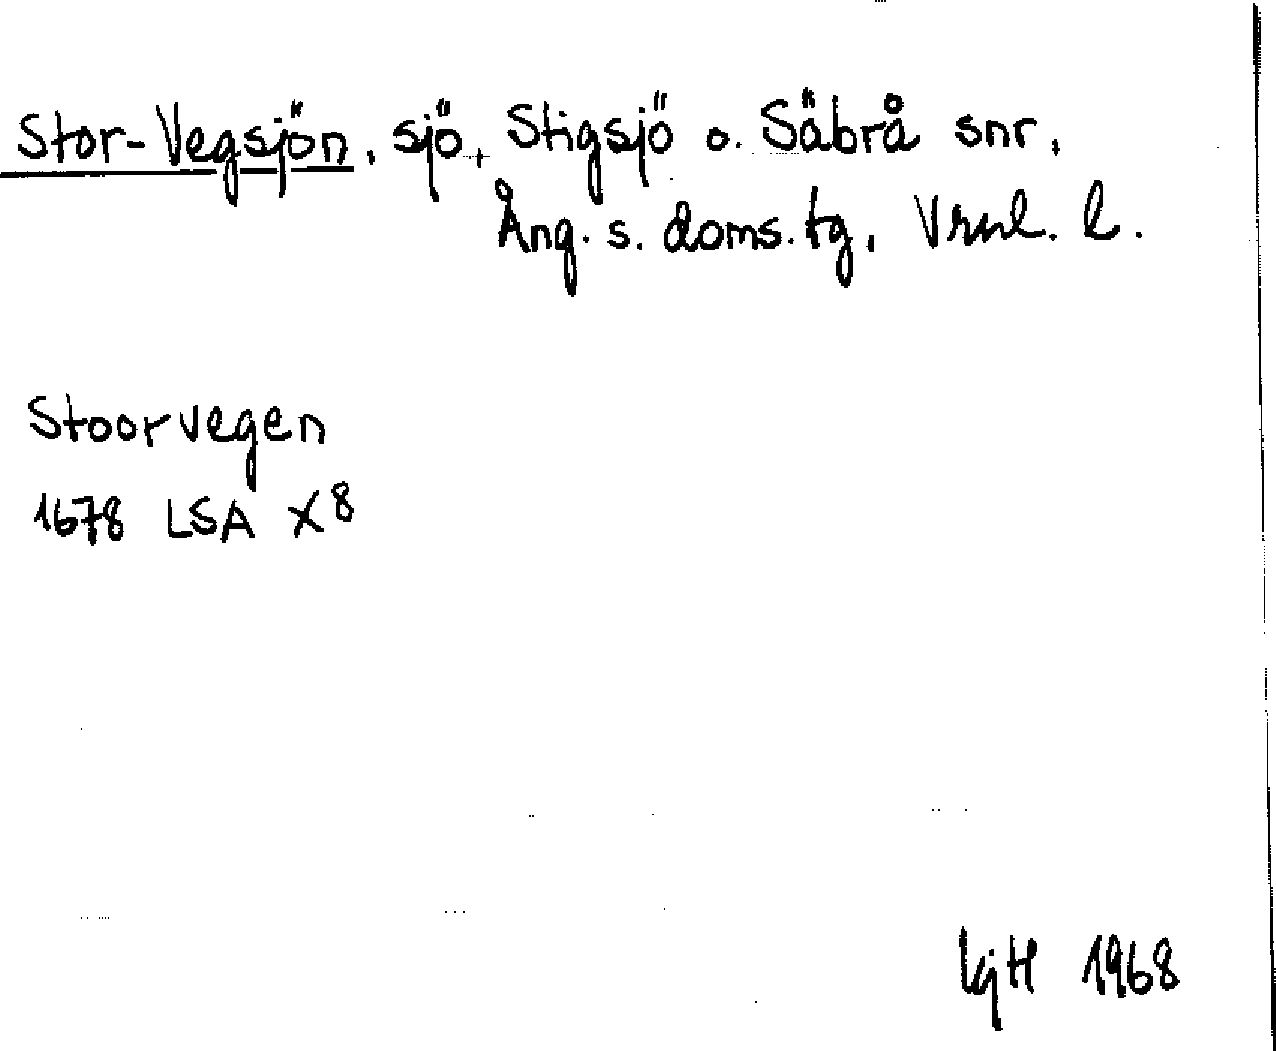 Stor-Vegsjön, sjö, Stigsjö o. Säbrå snr,
Ång. s. doms. tg, Vrnl. l.
Stoorvegen
1678 LSA X8
1968